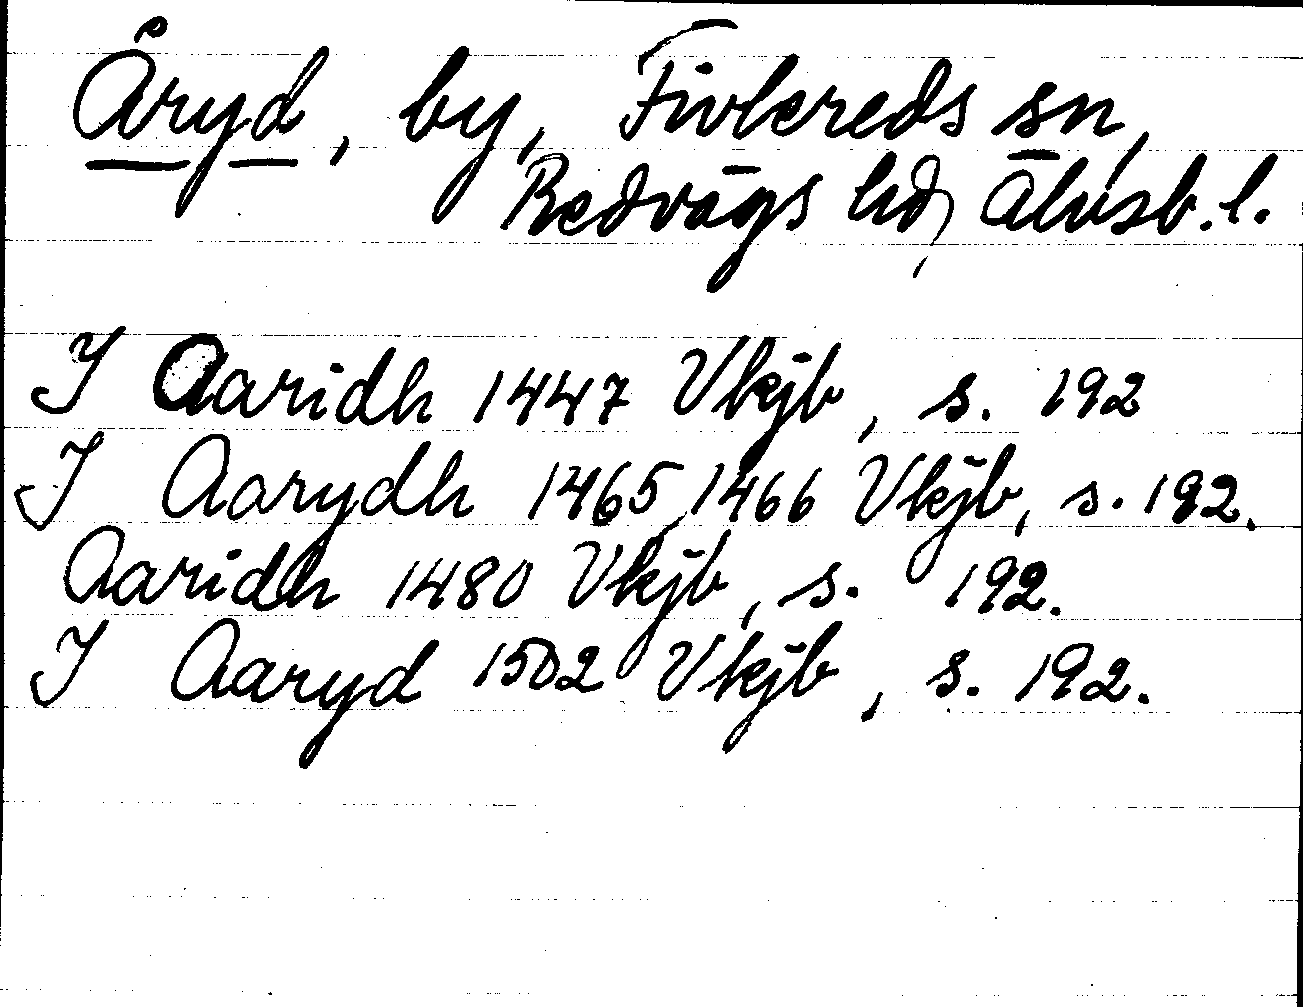 Åryd, by, Fivlereds sn,
Redvägs hd, Älvsb. l.
I Aaridh 1447 Vkjb, s. 192
I Aarydh 1465, 1466 Vkjb, s. 192.
Aaridh 1480 Vkjb, s. 192.
I Aaryd 1502 Vkjb, s. 192.